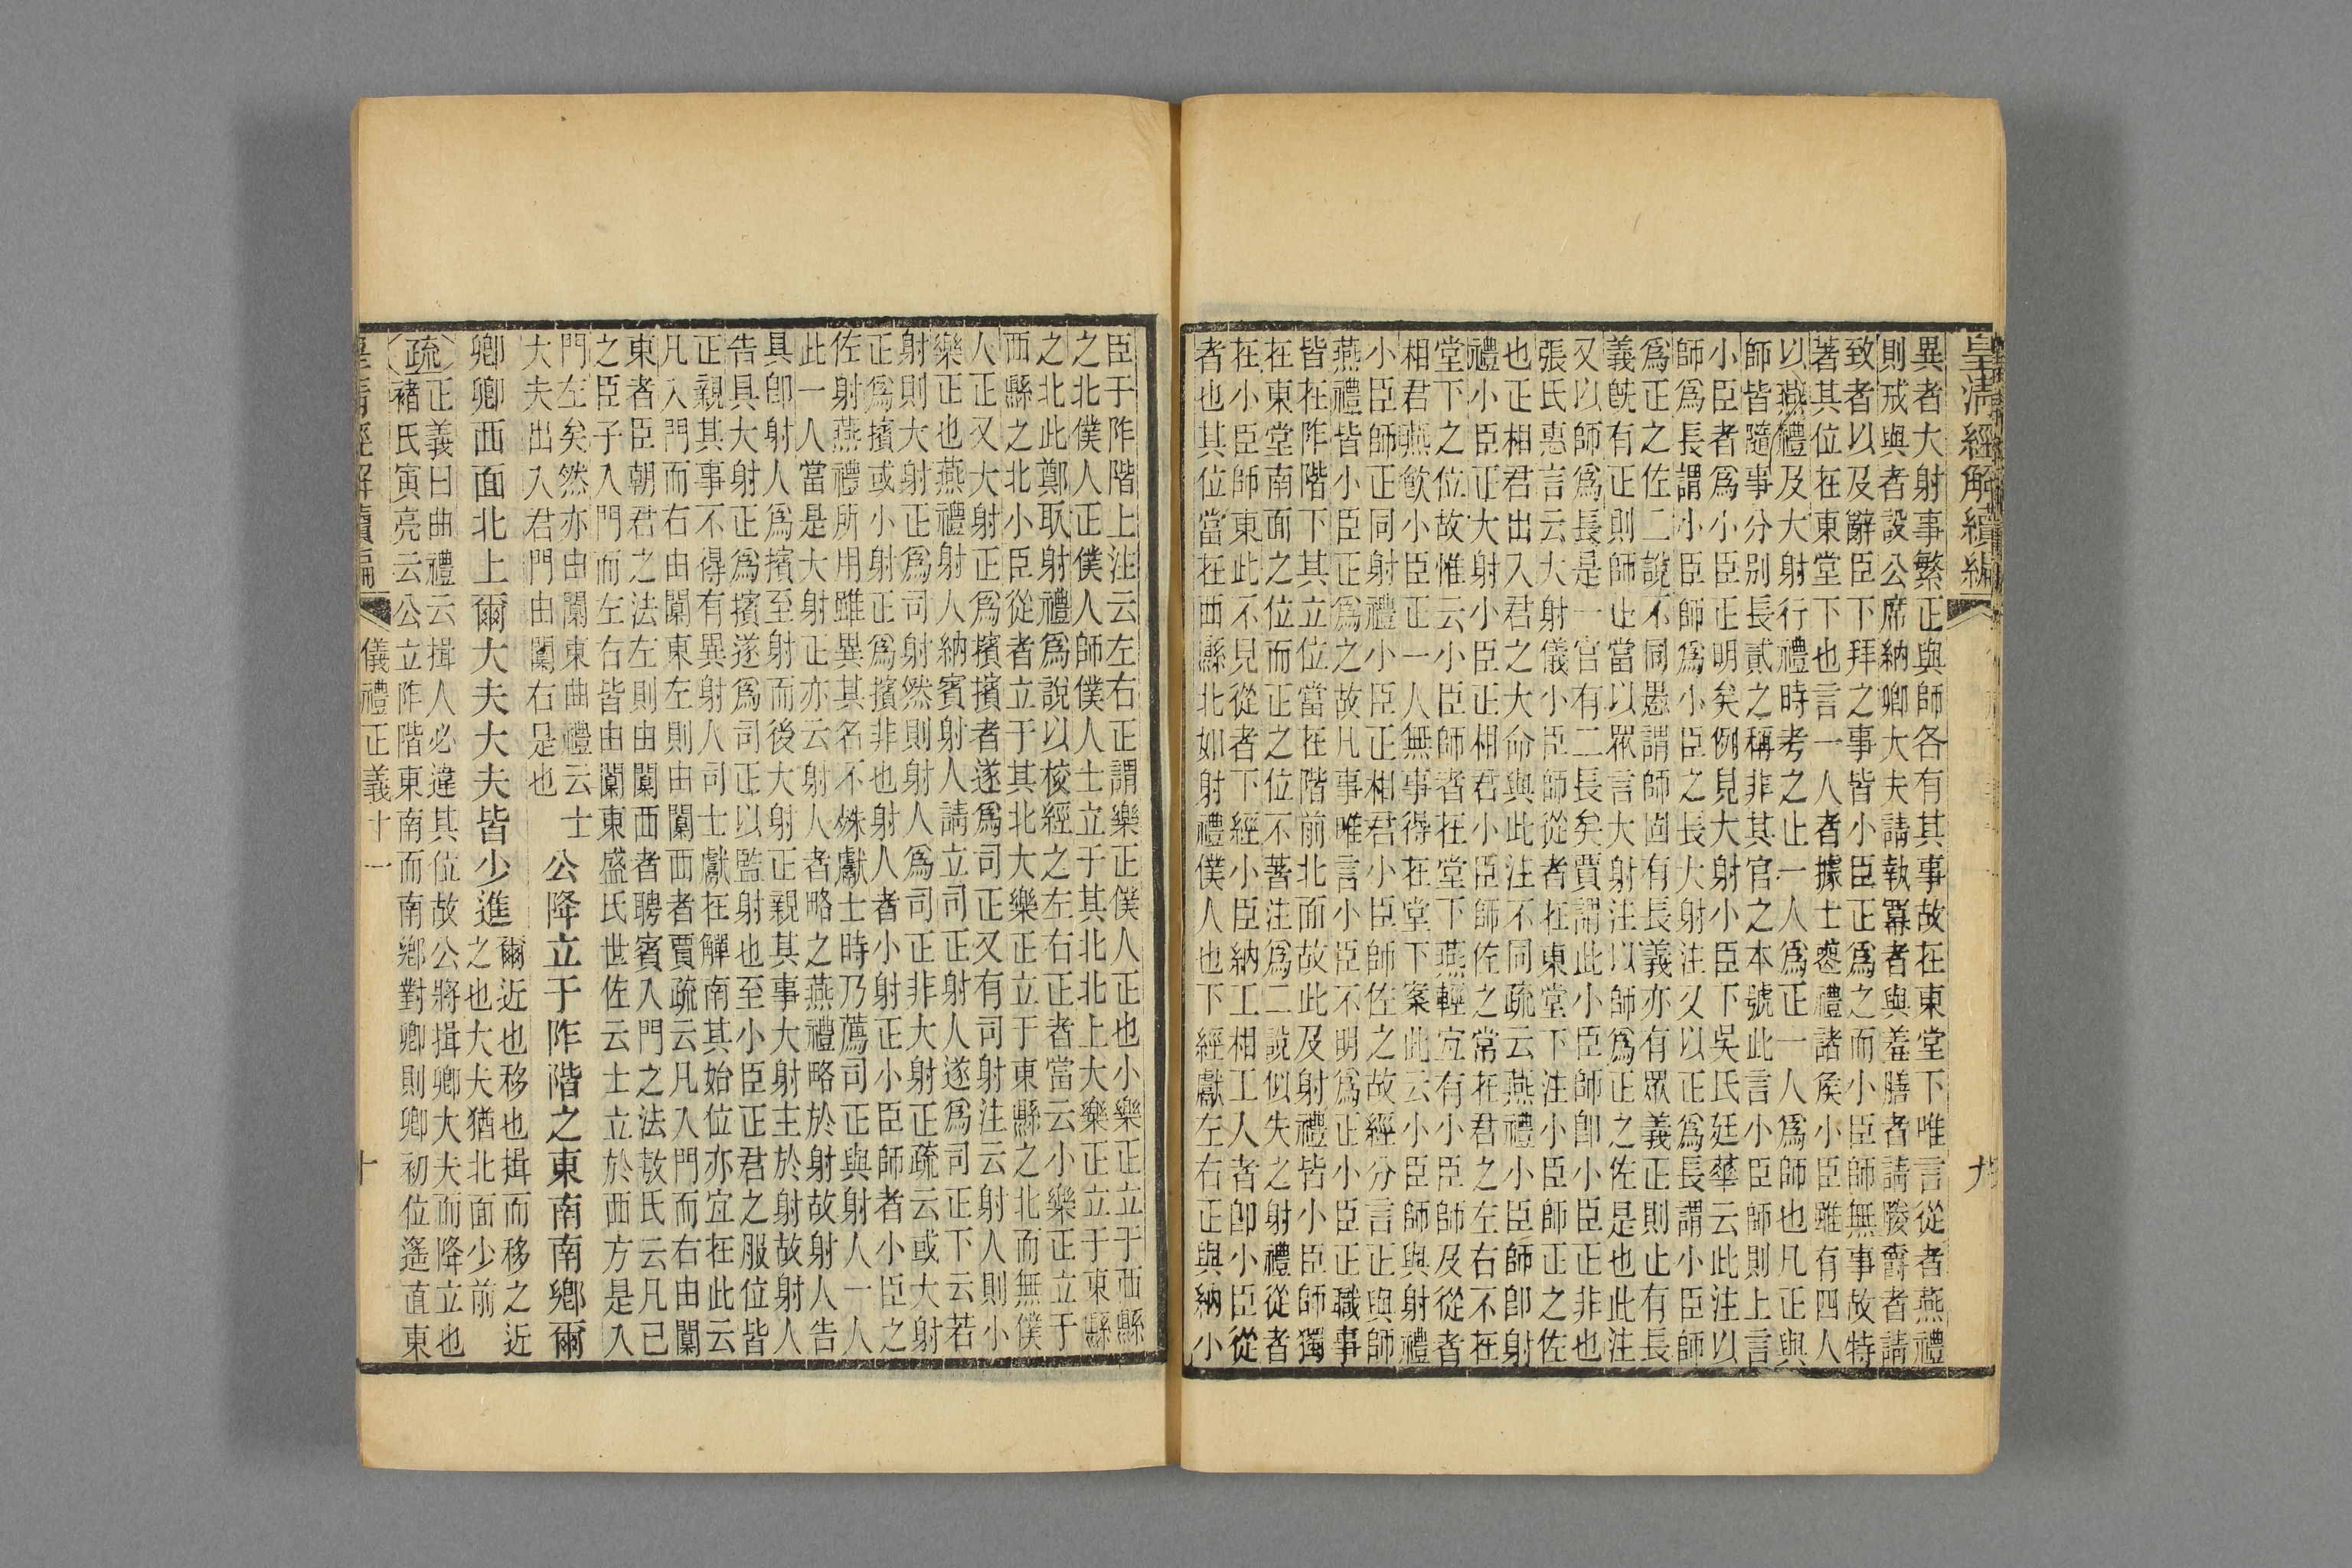 皇清經解續編
九
異者大射事繁正與師各有其事故在東堂下唯言從者燕禮
則戒與者設公席納卿大夫請執冪者與羞膳者請媵爵者請
致者以及辭臣下拜之事皆小臣正爲之而小臣師無事故特
著其位在東堂下也言一人者據士喪禮諸侯小臣雖有四人
以燕禮及大射行禮時考之止一人爲正一人爲師也凡正與
師皆隨事分别長貳之稱非其官之本號此言小臣師則上言
小臣者爲小臣正明矣例見大射小臣下吳氏廷華云此注以
師爲長謂小臣師爲小臣之長大射注又以正爲長謂小臣師
爲正之佐二說不同愚謂師固有長義亦有眾義正則止有長
義旣有正則師止當以眾言大射注以師爲正之佐是也此注
又以師爲長是一官有二長矣賈謂此小臣師卽小臣正非也
張氏惠言云大射儀小臣師從者在東堂下注小臣師正之佐
也正相君出入君之大命與此注不同疏云燕禮小臣師卽射
禮小臣正大射小臣正相君小臣師佐之常在君之左右不在
堂下之位故惟云小臣師者在堂下燕輕宜有小臣師及從者
相君燕飮小臣正一人無事得在堂下案此云小臣師與射禮
小臣師正同射禮小臣正相君小臣師佐之故經分言正與師
燕禮皆小臣正爲之故凡事唯言小臣不明爲正小臣正職事
皆在阼階下其立位當在階前北面故此及射禮皆小臣師獨
在東堂南面之位而正之位不著注爲二說似失之射禮從者
在小臣師東此不見從者下經小臣納工相工人者卽小臣從
者也其位當在西縣北如射禮僕人也下經獻左右正與納小
臣于阼階上注云左右正謂樂正僕人正也小樂正立于西縣
之北僕人正僕人師僕人士立于其北北上大樂正立于東縣
之北此鄭取射禮爲說以校經之左右正者當云小樂正立于
西縣之北小臣從者立于其北大樂正立于東縣之北而無僕
人正又大射正爲擯擯者遂爲司正又有司射注云射人則小
樂正也燕禮射人納賓射人請立司正射人遂爲司正下云若
射則大射正爲司射然則射人爲司正非大射正疏云或大射
正爲擯或小射正爲擯非也射人者小射正小臣師者小臣之
佐射燕禮所用雖異其名不殊獻士時乃薦司正與射人一人
此一人當是大射正亦云射人者略之燕禮略於射故射人告
具卽射人爲擯至射而後大射正親其事大射主於射故射人
告具大射正爲擯遂爲司正以監射也至小臣正君之服位皆
正親其事不得有異射人司士獻在觶南其始位亦宜在此云
凡入門而右由闑東左則由闑西者賈疏云凡入門而右由闑
東者臣朝君之法左則由闑西者聘賓入門之法敖氏云凡已
之臣子入門而左右皆由闑東盛氏世佐云士立於西方是入
門左矣然亦由闑東曲禮云士
大夫出入君門由闑右是也
公降立于阼階之東南南鄉爾
卿卿西面北上爾大夫大夫皆少進
爾近也移也揖而移之近
之也大夫猶北面少前
疏
正義曰曲禮云揖人必違其位故公將揖卿大夫而降立也
褚氏寅亮云公立阼階東南而南鄉對卿則卿初位遙直東
皇清經解續編
儀禮正義十一
十